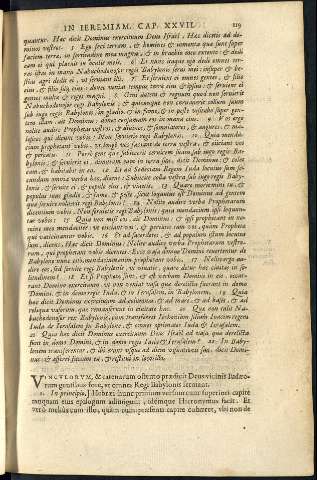 IN IEREMIAM. CAP. XXVII. 119
quantur. Hæc dicit Dominus exercituum Deus Israel: Hæc dicetis ad do-
minos vestros. 5 Ego feci terram, & homines, & iumenta quæ sunt super
faciem terræ, in fortitudine mea magna, & in brachio meo extento: & dedi
eam ei qui placuit in oculis meis. 6 Et nunc itaque ego dedi omnes ter-
ras istas in manu Nabuchodonosor regis Babylonis servi mei: insuper & be-
stias agri dedi ei, ut serviant illi. 7 Et servient ei omnes gentes, & filio
eius, & filio filij eius: donec veniat tempus terræ eius & ipsius: & servient ei
gentes multæ & reges magni. 8 Gens autem & regnum quod non servierit
Nabuchodonosor regi Babylonis, & quicunque non curvaverit collum suum
sub iugo regis Babylonis: in gladio, & in fame, & in peste visitabo super gen-
tem illam, ait Dominus: donec consumam eos in manu eius. 9 Vos ergo
nolite audire Prophetas vestros, & divinos, & somniatores, & augures, & ma-
leficos, qui dicunt vobis: Non servietis regi Babylonis. 10 Quia menda-
cium prophetant vobis: ut longè vos faciant de terra vestra, & eijciant vos
& pereatis. 11 Porrò gens quæ subiecerit cervicem suam sub iugo regis Ba-
bylonis, & servierit ei: dimittam eam in terra sua, dicit Dominus: & colet
eam, & habitabit in ea. 12 Et ad Sedeciam Regem Iuda locutus sum se-
cundum omnia verba hæc, dicens: Subijcite colla vestra sub iugo regis Baby-
lonis, & servite ei, & populo eius, & vivetis. 13 Quare moriemini tu, & 
populus tuus gladio, & fame, & peste, sicut locutus est Dominus ad gentem
quæ servire noluerit regi Babylonis? 14 Nolite audire verba Prophetarum
dicentium vobis: Non servietis regi Babylonis: quia mendacium ipsi loquun-
tur vobis: 15 Quia non misi eos, ait Dominus: & ipsi prophetant in no-
mine meo mendaciter: ut eijciant vos, & pereatis tam vos, quàm Prophetæ
qui vaticinantur vobis. 16 Et ad sacerdotes, & ad populum istum locutus
sum, dicens: Hæc dicit Dominus: Nolite audire verba Prophetarum vestro-
rum, qui prophetant vobis dicentes: Ecce vasa domus Domini revertentur de
Babylone nunc cito, mendacium enim prophetant vobis. 17 Nolite ergo au-
dire eos, sed servite regi Babylonis, ut vivatis: quare datur hæc civitas in so-
litudinem? 18 Et si Prophetæ sunt, & est verbum Domini in eis: occur-
rant Domino exercituum, ut non veniant vasa quæ derelicta fuerant in domo
Domini, & in domo regis Iuda, & in Ierusalem, in Babylonem. 19 Quia
hæc dicit Dominus exercituum ad columnas, & ad mare, & ad bases, & ad
reliqua vasorum, quæ remanserunt in civitate hac: 20 Quæ non tulit Na-
buchodonosor rex Babylonis, cum transferret Iechoniam filium Ioacim regem
Iuda de Ierusalem in Babylonem, & omnes optimates Iuda & Ierusalem:
21 Quia hæc dicit Dominus exercituum Deus Israel ad vasa quæ derelicta
sunt in domo Domini, & in domo regis Iuda & Ierusalem: 22 In Baby-
lonem transferentur, & ibi erunt usque ad diem visitationis suæ, dicit Domi-
nus: & afferri faciam ea, & restitui in loco isto.
VINCULORUM, & catenarum ostento prædicit Deus vicinis Iudæo-
rum gentibus fore, ut omnes Regi Babylonis serviant.
1. In principio.] Hebræi hunc primum versum cum superiori capite
tanquam eius epilogum adiungunt; idemque Hieronymus facit. Et
verò melius cum isto, quàm cum præsenti capite cohæret, ubi non de